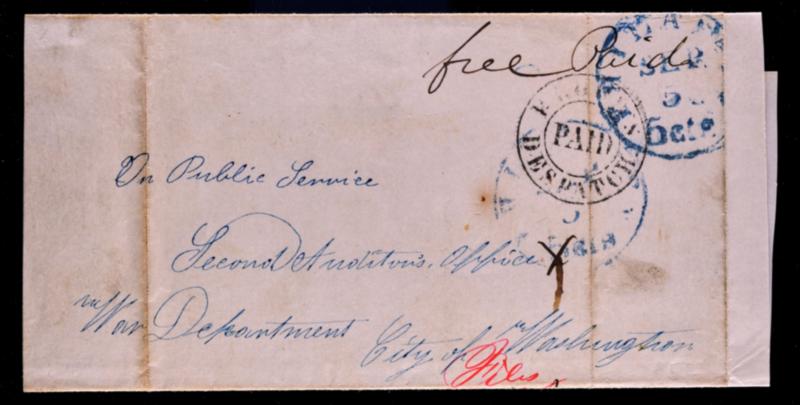 free Paid
SEP
5
5cts
PAID
DESPATCH
5
5cts
On Public Service
Second Auditor's Office
War Department
City of Washington
Files